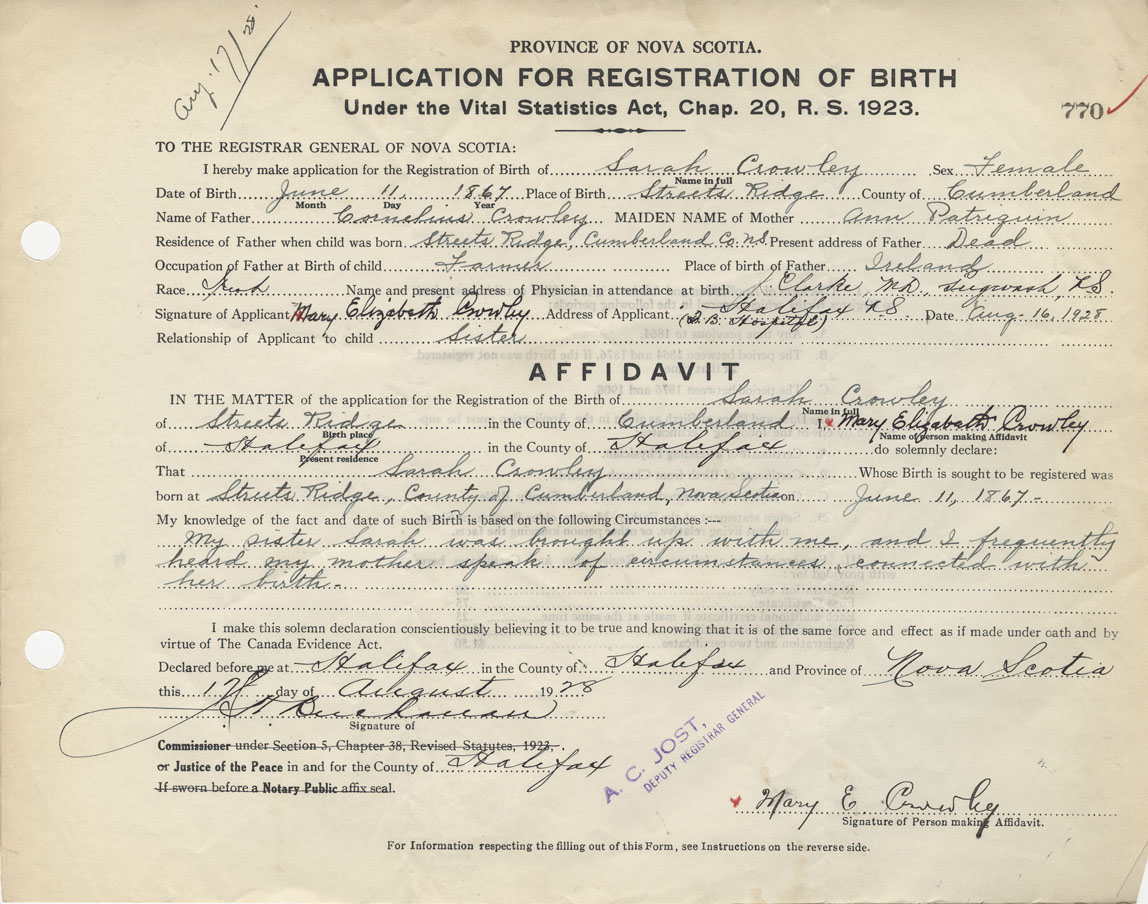 Aug. 17/28
PROVINCE OF NOVA SCOTIA.
APPLICATION FOR REGISTRATION OF BIRTH
Under the Vital Statistics Act, Chap. 20, R. S. 1923.
770
TO THE REGISTRAR GENERAL OF NOVA SCOTIA:
I hereby make application for the Registration of Birth of Sarah Crowley Sex Female
Name in full
Date of Birth June 11, 1867 Place of Birth Streets Ridge County of Cumberland
Month Day Year
Name of Father Cornelius Crowley MAIDEN NAME of Mother Ann Patriquin
Residence of Father when child was born Streets Ridge, Cumberland Co. N.S. Present address of Father Dead
Occupation of Father at Birth of child Farmer Place of birth of Father Ireland
Race Irish Name and present address of Physician in attendance at birth Clarke, MD. Pugwash, N.S.
Signature of Applicant Mary Elizabeth Crowley Address of Applicant Halifax N.S. Date Aug. 16, 1928
(T. B. Hospital)
Relationship of Applicant to child Sister
AFFIDAVIT
IN THE MATTER of the application for the Registration of Birth of Sarah Crowley
Name in full
of Streets Ridge in the County of Cumberland I, Mary Elizabeth Crowley
Birth place Name of person making Affidavit
of Halifax in the County of Halifax do solemnly declare:
Present residence
That Sarah Crowley Whose Birth is sought to be registered was
born at Streets Ridge, County of Cumberland, Nova Scotia on June 11, 1867-
My knowledge of the fact and date of such Birth is based on the following Circumstances :---
My sister Sarah was brought up with me, and I frequently
heard my mother speak of circumstances connected with
her birth.-
I make this solemn declaration conscientiously believing it to be true and knowing that it is of the same force and effect as if made under oath and by
virtue of The Canada Evidence Act.
Declared before me at Halifax in the County of Halifax and Province of Nova Scotia
this 17 day of August 1928
Buchanan
Signature of
Commissioner under Section 5, Chapter 38, Revised Statutes, 1923,
or Justice of the Peace in and for the County of Halifax
If sworn before a Notary Public affix seal.
A. C. JOST,
DEPUTY REGISTRAR GENERAL
Mary E. Crowley
Signature of Person making Affidavit.
For Information respecting the filling out of this Form, see Instructions on the reverse side.